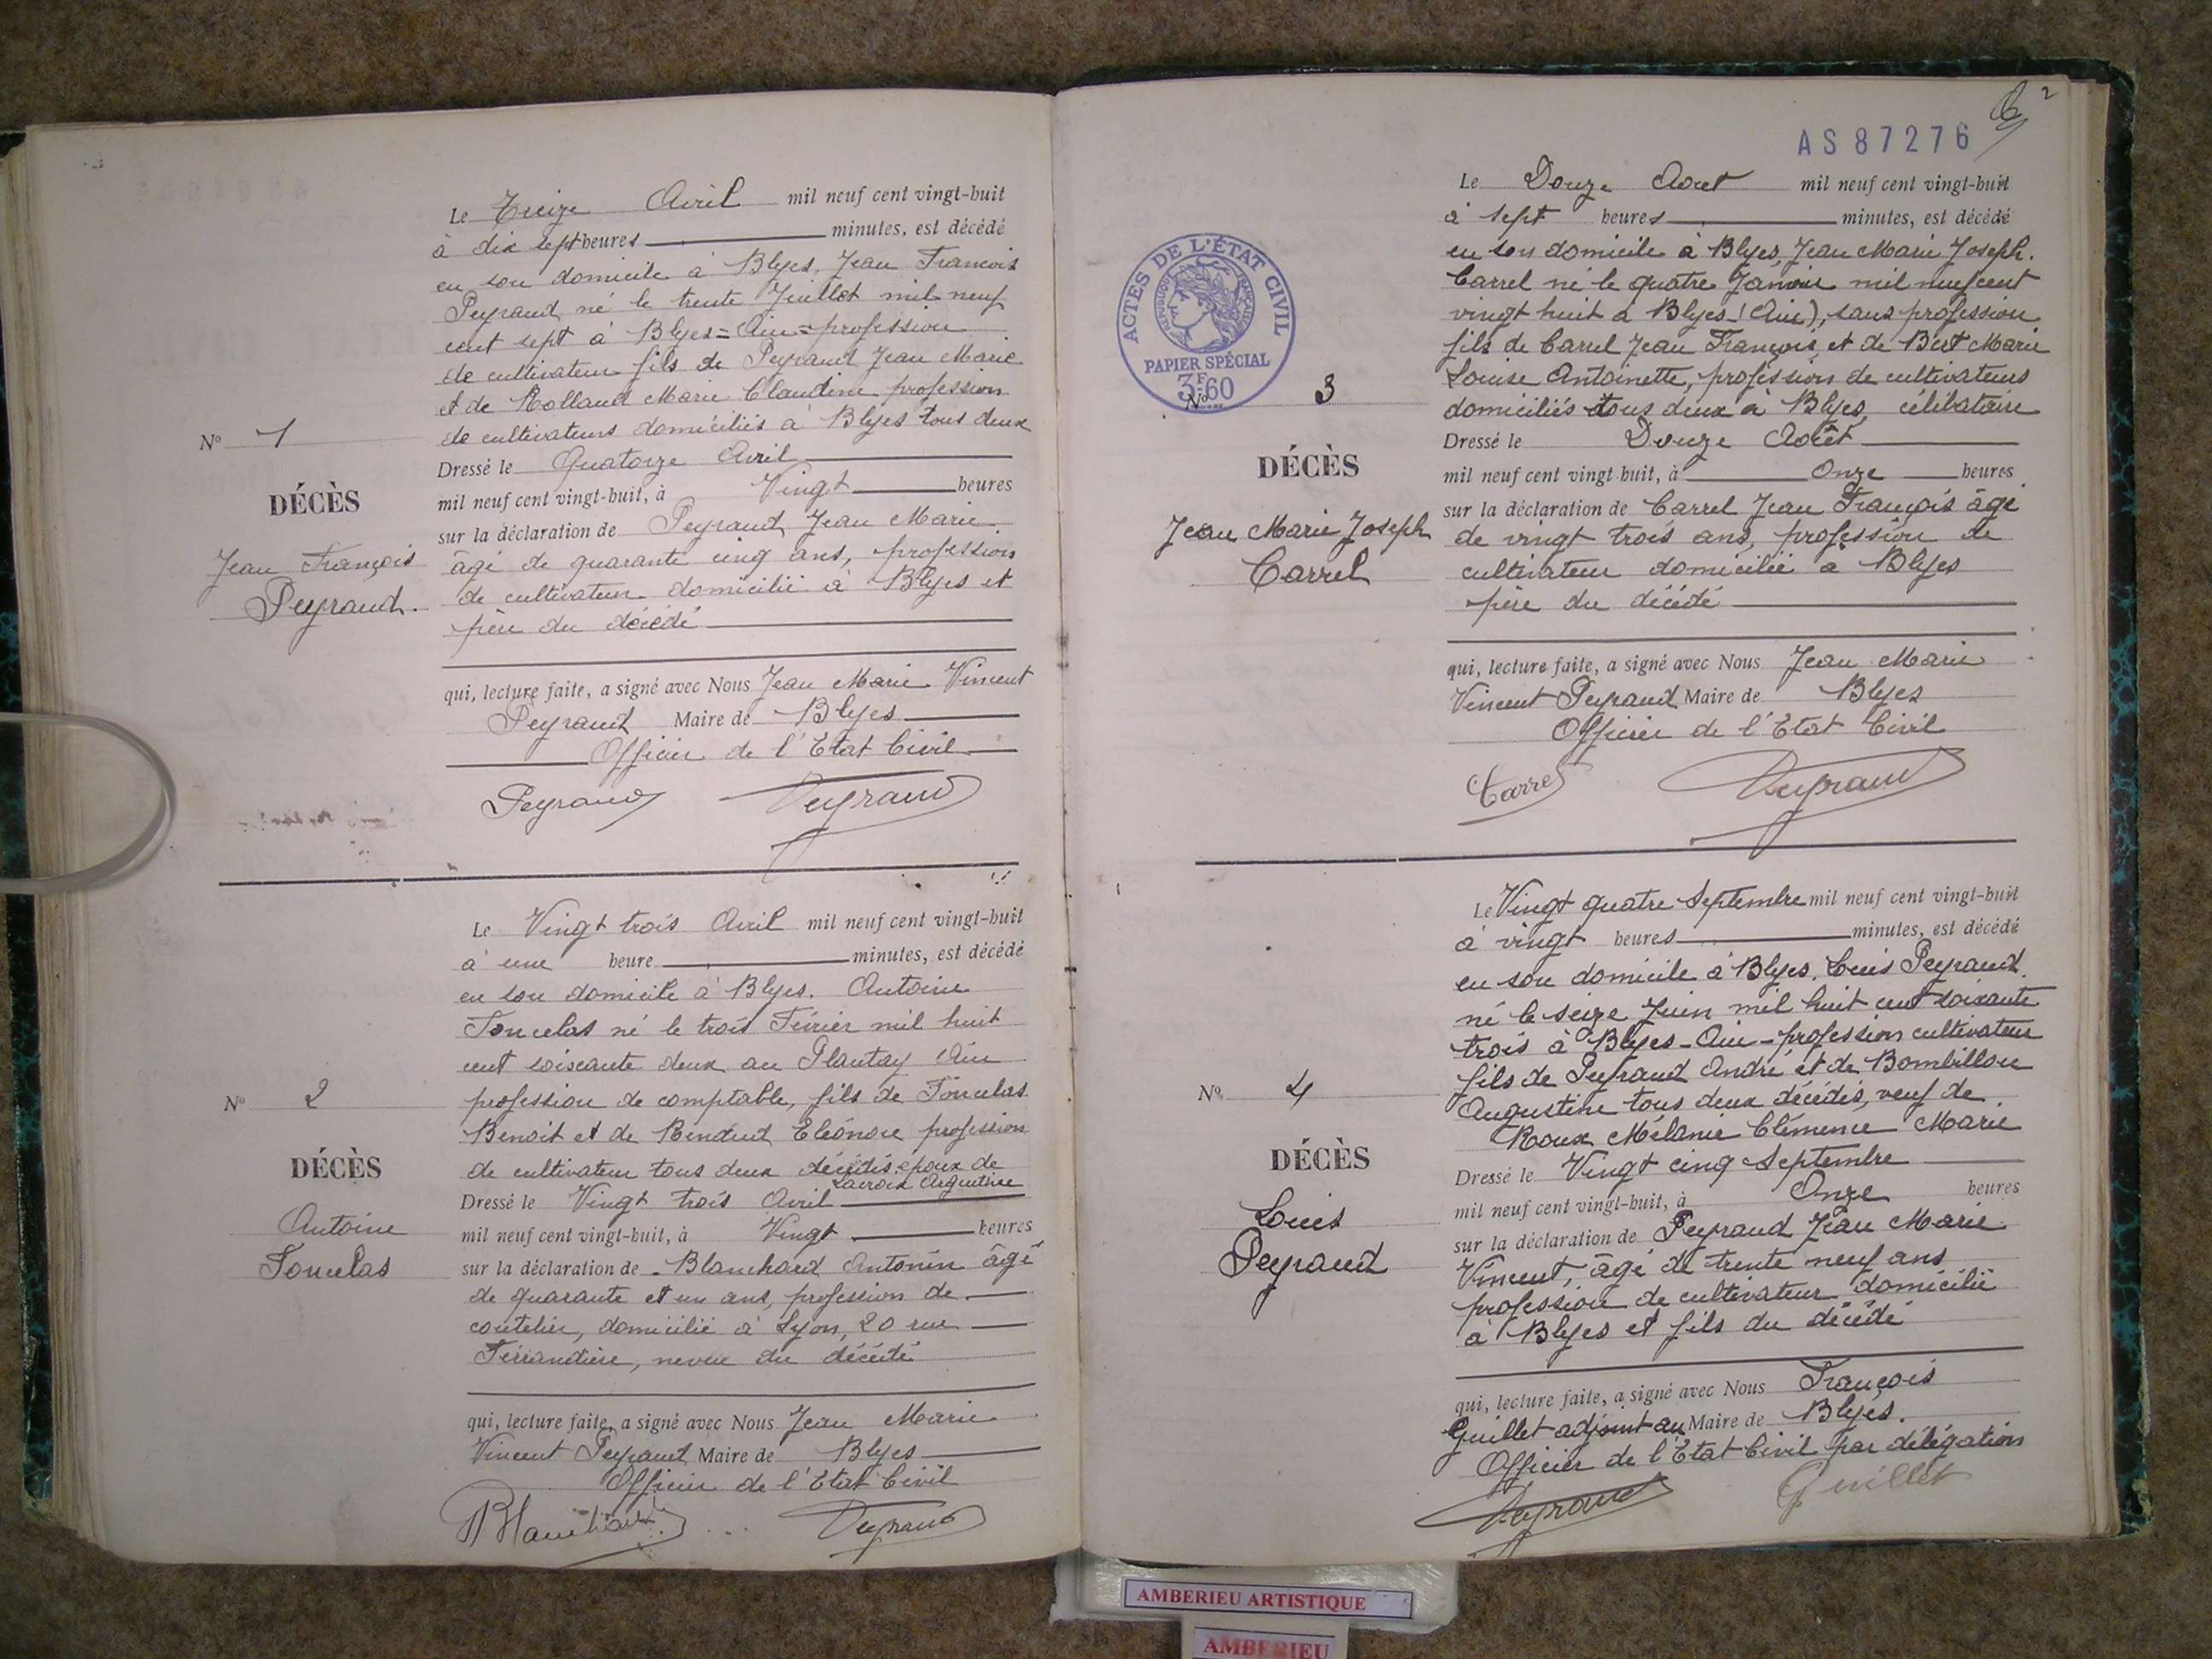 Le Treize Avril mil neuf cent vingt-huit
à dix sept heures minutes, est décédé
en son domicile à Blyes, Jean François
Peyraud né le trente Juillet mil neuf
cent sept à Blyes = Ain = profession
de cultivateur fils de Peyraud Jean Marie
et de Rolland Marie Claudine profession
de cultivateurs domiciliés à Blyes tous deux
Nº 1
DÉCÈS
Jean François
Peyraud.
Dressé le Quatorze Avril
mil neuf cent vingt-huit, à Vingt heures
sur la déclaration de Peyraud Jean Marie
âgé de quarante cinq ans, profession
de cultivateur domicilié à Blyes et
père du décédé
qui, lecture faite, a signé avec Nous Jean Marie Vincent
Peyraud Maire de Blyes
Officier de l'Etat Civil
Peyraud Peyraud
Le Vingt trois Avril mil neuf cent vingt-huit
à une heure minutes, est décédé
en son domicile à Blyes. Antoine
Foucelas né le trois Février mil huit
cent soixante deux au Plantay Ain
profession de comptable, fils de Foucelas
Benoit et de Eléonore profession
de cultivateur tous deux décédés. époux de
Lacroix Argentine
Nº 2
DÉCÈS
Antoine
Foucelas
Dressé le Vingt trois Avril
mil neuf cent vingt-huit, à Vingt heures
sur la déclaration de Blanchard Antonin âgé
de quarante et un ans, profession de
coutelier, domicilié à Lyon, 20 rue
Ferrandière, neveu du décédé
qui, lecture faite, a signé avec Nous Jean Marie
Vincent Peyraud Maire de Blyes
Officier de l'Etat Civil
Blanchard Peyraud
2
AS87276
Le Douze Aout mil neuf cent vingt-huit
à sept heures minutes, est décédé
en son domicile à Blyes, Jean Marie Joseph.
Carrel né le quatre Janvier mil neuf cent
vingt huit à Blyes (Ain), sans profession
fils de Carrel Jean François et de Best Marie
Louise Antoinette, profession de cultivateurs
domiciliés tous deux à Blyes, célibataire
ACTES DE L'ÉTAT CIVIL
RÉPUBLIQUE FRANÇAISE
PAPIER SPÉCIAL
3F.60
Nº 3
DÉCÈS
Jean Marie Joseph
Carrel
Dressé le Douze Août
mil neuf cent vingt-huit, à Onze heures
sur la déclaration de Carrel Jean François âgé
de vingt trois ans, profession de
cultivateur domicilié à Blyes
père du décédé
qui, lecture faite, a signé avec Nous Jean Marie
Vincent Peyraud Maire de Blyes
Officier de l'Etat Civil
Carrel Peyraud
Le Vingt quatre Septembre mil neuf cent vingt-huit
à vingt heures minutes, est décédé
en son domicile à Blyes. Louis Peyraud.
né le seize Juin mil huit cent soixante
trois à Blyes - Ain - profession cultivateur
fils de Peyraud André et de Bombillon
Augustine tous deux décédés, veuf de
Roux Mélanie Clémence Marie
Nº 4
DÉCÈS
Louis
Peyraud
Dressé le Vingt cinq Septembre
mil neuf cent vingt-huit, à Onze heures
sur la déclaration de Peyraud Jean Marie
Vincent, âgé de trente neuf ans
profession de cultivateur domicilié
à Blyes et fils du décédé
qui, lecture faite, a signé avec Nous François
Guillet adjoint au Maire de Blyes.
Officier de l'Etat Civil par délégation
Peyraud Guillet
AMBERIEU ARTISTIQUE
AMBERIEU